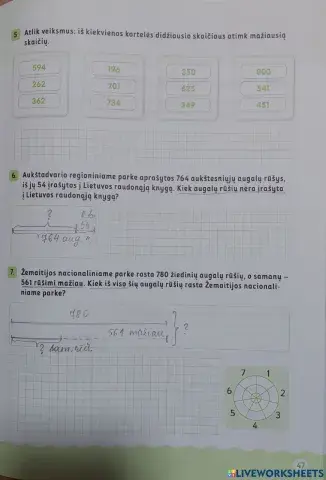 5. Atlik veiksmus: iš kiekvienos kortelės didžiausio skaičiaus atimk mažiausią
skaičių.
594
262
362
101
734
6. Aukštadvario regioniniame parke aprašytos 764 aukštesniųjų augalų rūšys,
iš jų 54 įrašytos į Lietuvos raudonąją knygą. Kiek augalų rūšių nėra įrašyta
į Lietuvos raudonąją knygą?
?
54
764 aug.
7. Žemaitijos nacionaliniame parke rasta 780 žiedinių augalų rūšių, o samanų –
561 rūšimi mažiau. Kiek iš viso šių augalų rūšių rasta Žemaitijos nacionali-
niame parke?
780
561 mažiau
?
?
7 1
6 2
5 3
4
47
LIVEWORKSHEETS